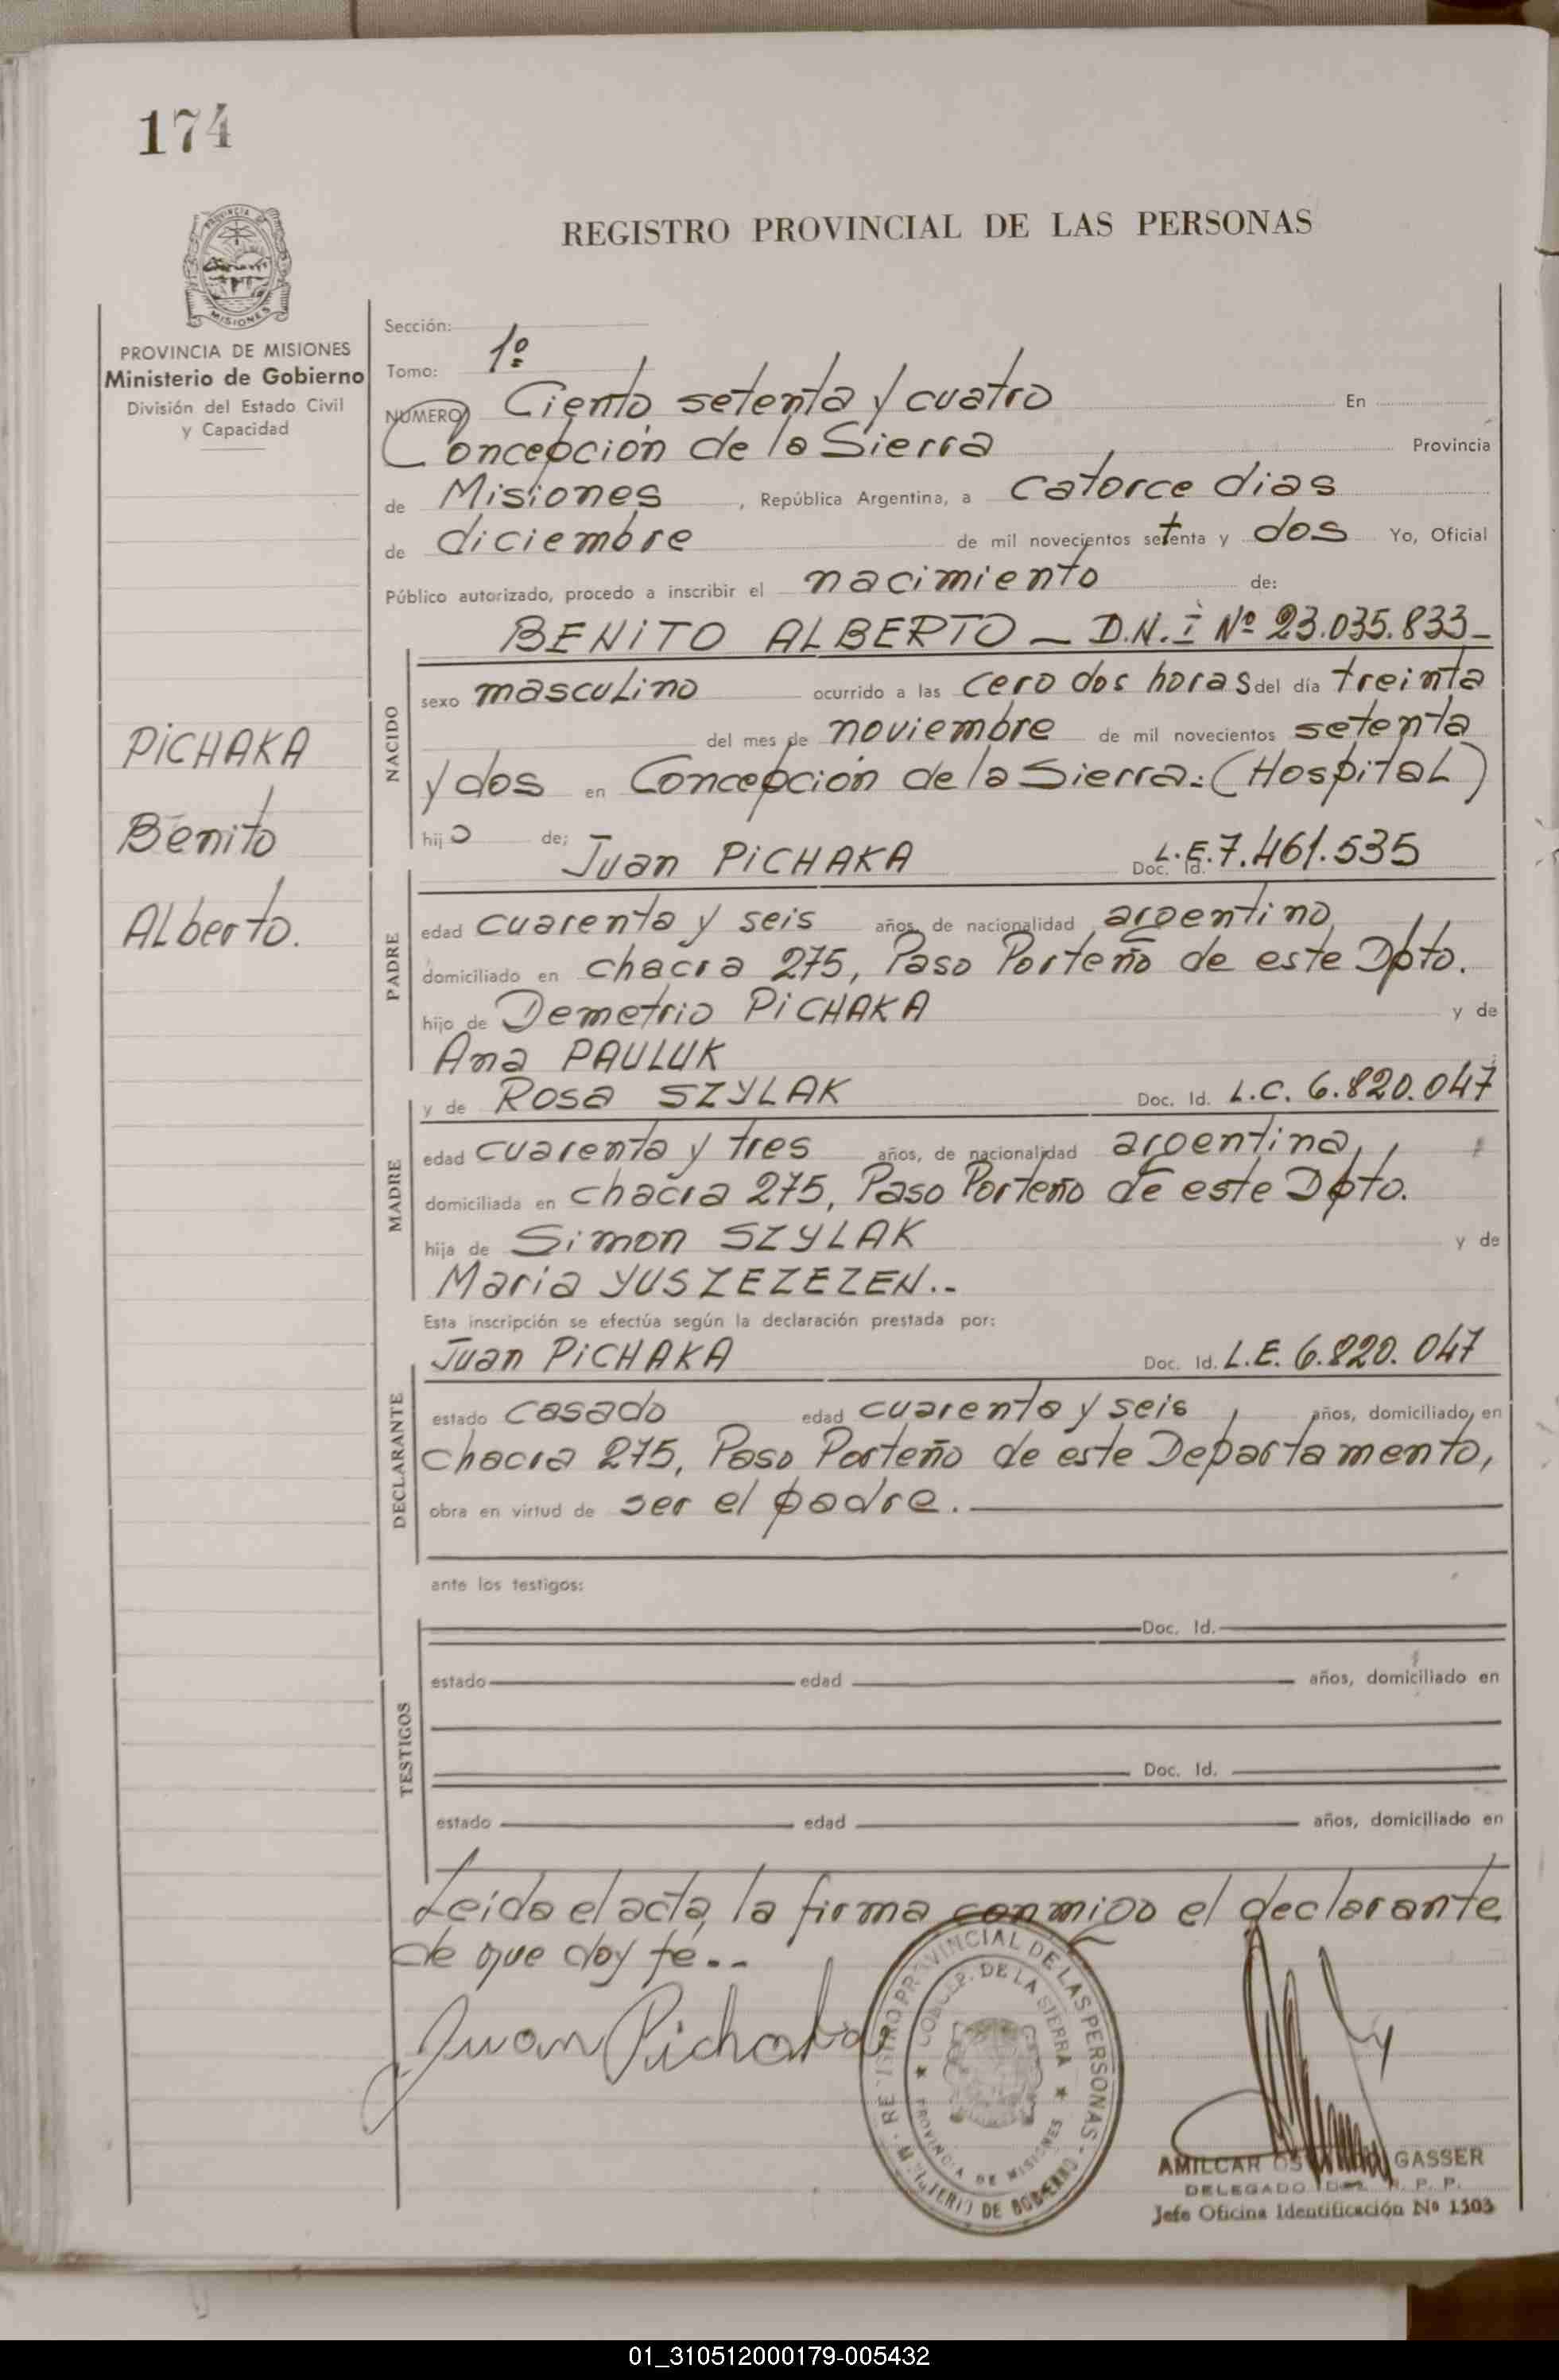 174
REGISTRO PROVINCIAL DE LAS PERSONAS
PROVINCIA DE MISIONES
Ministerio de Gobierno
División del Estado Civil
y Capacidad
PiCHAKA
Benito
ALberto.
Sección:
Tomo: 1º
NUMERO Ciento setenta y cuatro En
Concepción de la Sierra Provincia
de Misiones, República Argentina, a catorce dias
de diciembre de mil novecientos setenta y dos Yo, Oficial
Público autorizado, procedo a inscribir el nacimiento de:
BENiTO ALBERTO — D.N.I Nº 23.035.833-
NACIDO
sexo mascuLino ocurrido a las cero dos horas del día treinta
del mes de noviembre de mil novecientos setenta
y dos en Concepción de la Sierra.- (HospitaL)
hijo de; Juan PiCHAKA Doc. Id. L.E. 7.461.535
PADRE
edad cuarenta y seis años, de nacionalidad argentino,
domiciliado en chacra 275, Paso Porteño de este Dpto.
hijo de Demetrio PiCHAKA y de
Ana PAULUK
y de Rosa SZYLAK Doc. Id. L.C. 6.820.047
MADRE
edad cuarenta y tres años, de nacionalidad argentina,
domiciliada en chacra 275, Paso Porteño de este Dpto.
hija de Simon SZYLAK y de
Maria YUSZEZEZEN..-
Esta inscripción se efectúa según la declaración prestada por:
Juan PiCHAKA Doc. Id. L.E. 6.820.047
DECLARANTE
estado casado edad cuarenta y seis años, domiciliado en
chacra 275, Paso Porteño de este Departamento,
obra en virtud de ser el padre.
ante los testigos:
TESTIGOS
Doc. Id.
estado edad años, domiciliado en
Doc. Id.
estado edad años, domiciliado en
Leida el acta, la firma conmigo el declarante
de que doy fé..-
Juan Pichaka
REGISTRO PROVINCIAL DE LAS PERSONAS - MINISTERIO DE GOBIERNO
CONCEP. DE LA SIERRA
PROVINCIA DE MISIONES
AMILCAR GASSER
DELEGADO R. P. P.
Jefe Oficina Identificación Nº 1303
01_310512000179-005432